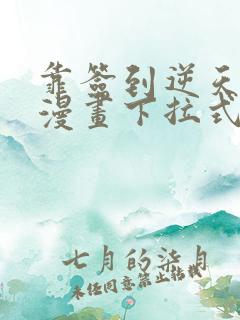 靠簽到逆天
漫畫下拉式
七月的柒月
未经同意禁止转载